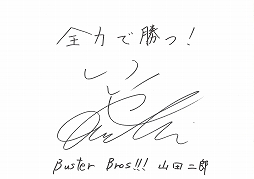 全力で勝つ！
Buster Bros!!! 山田二郎